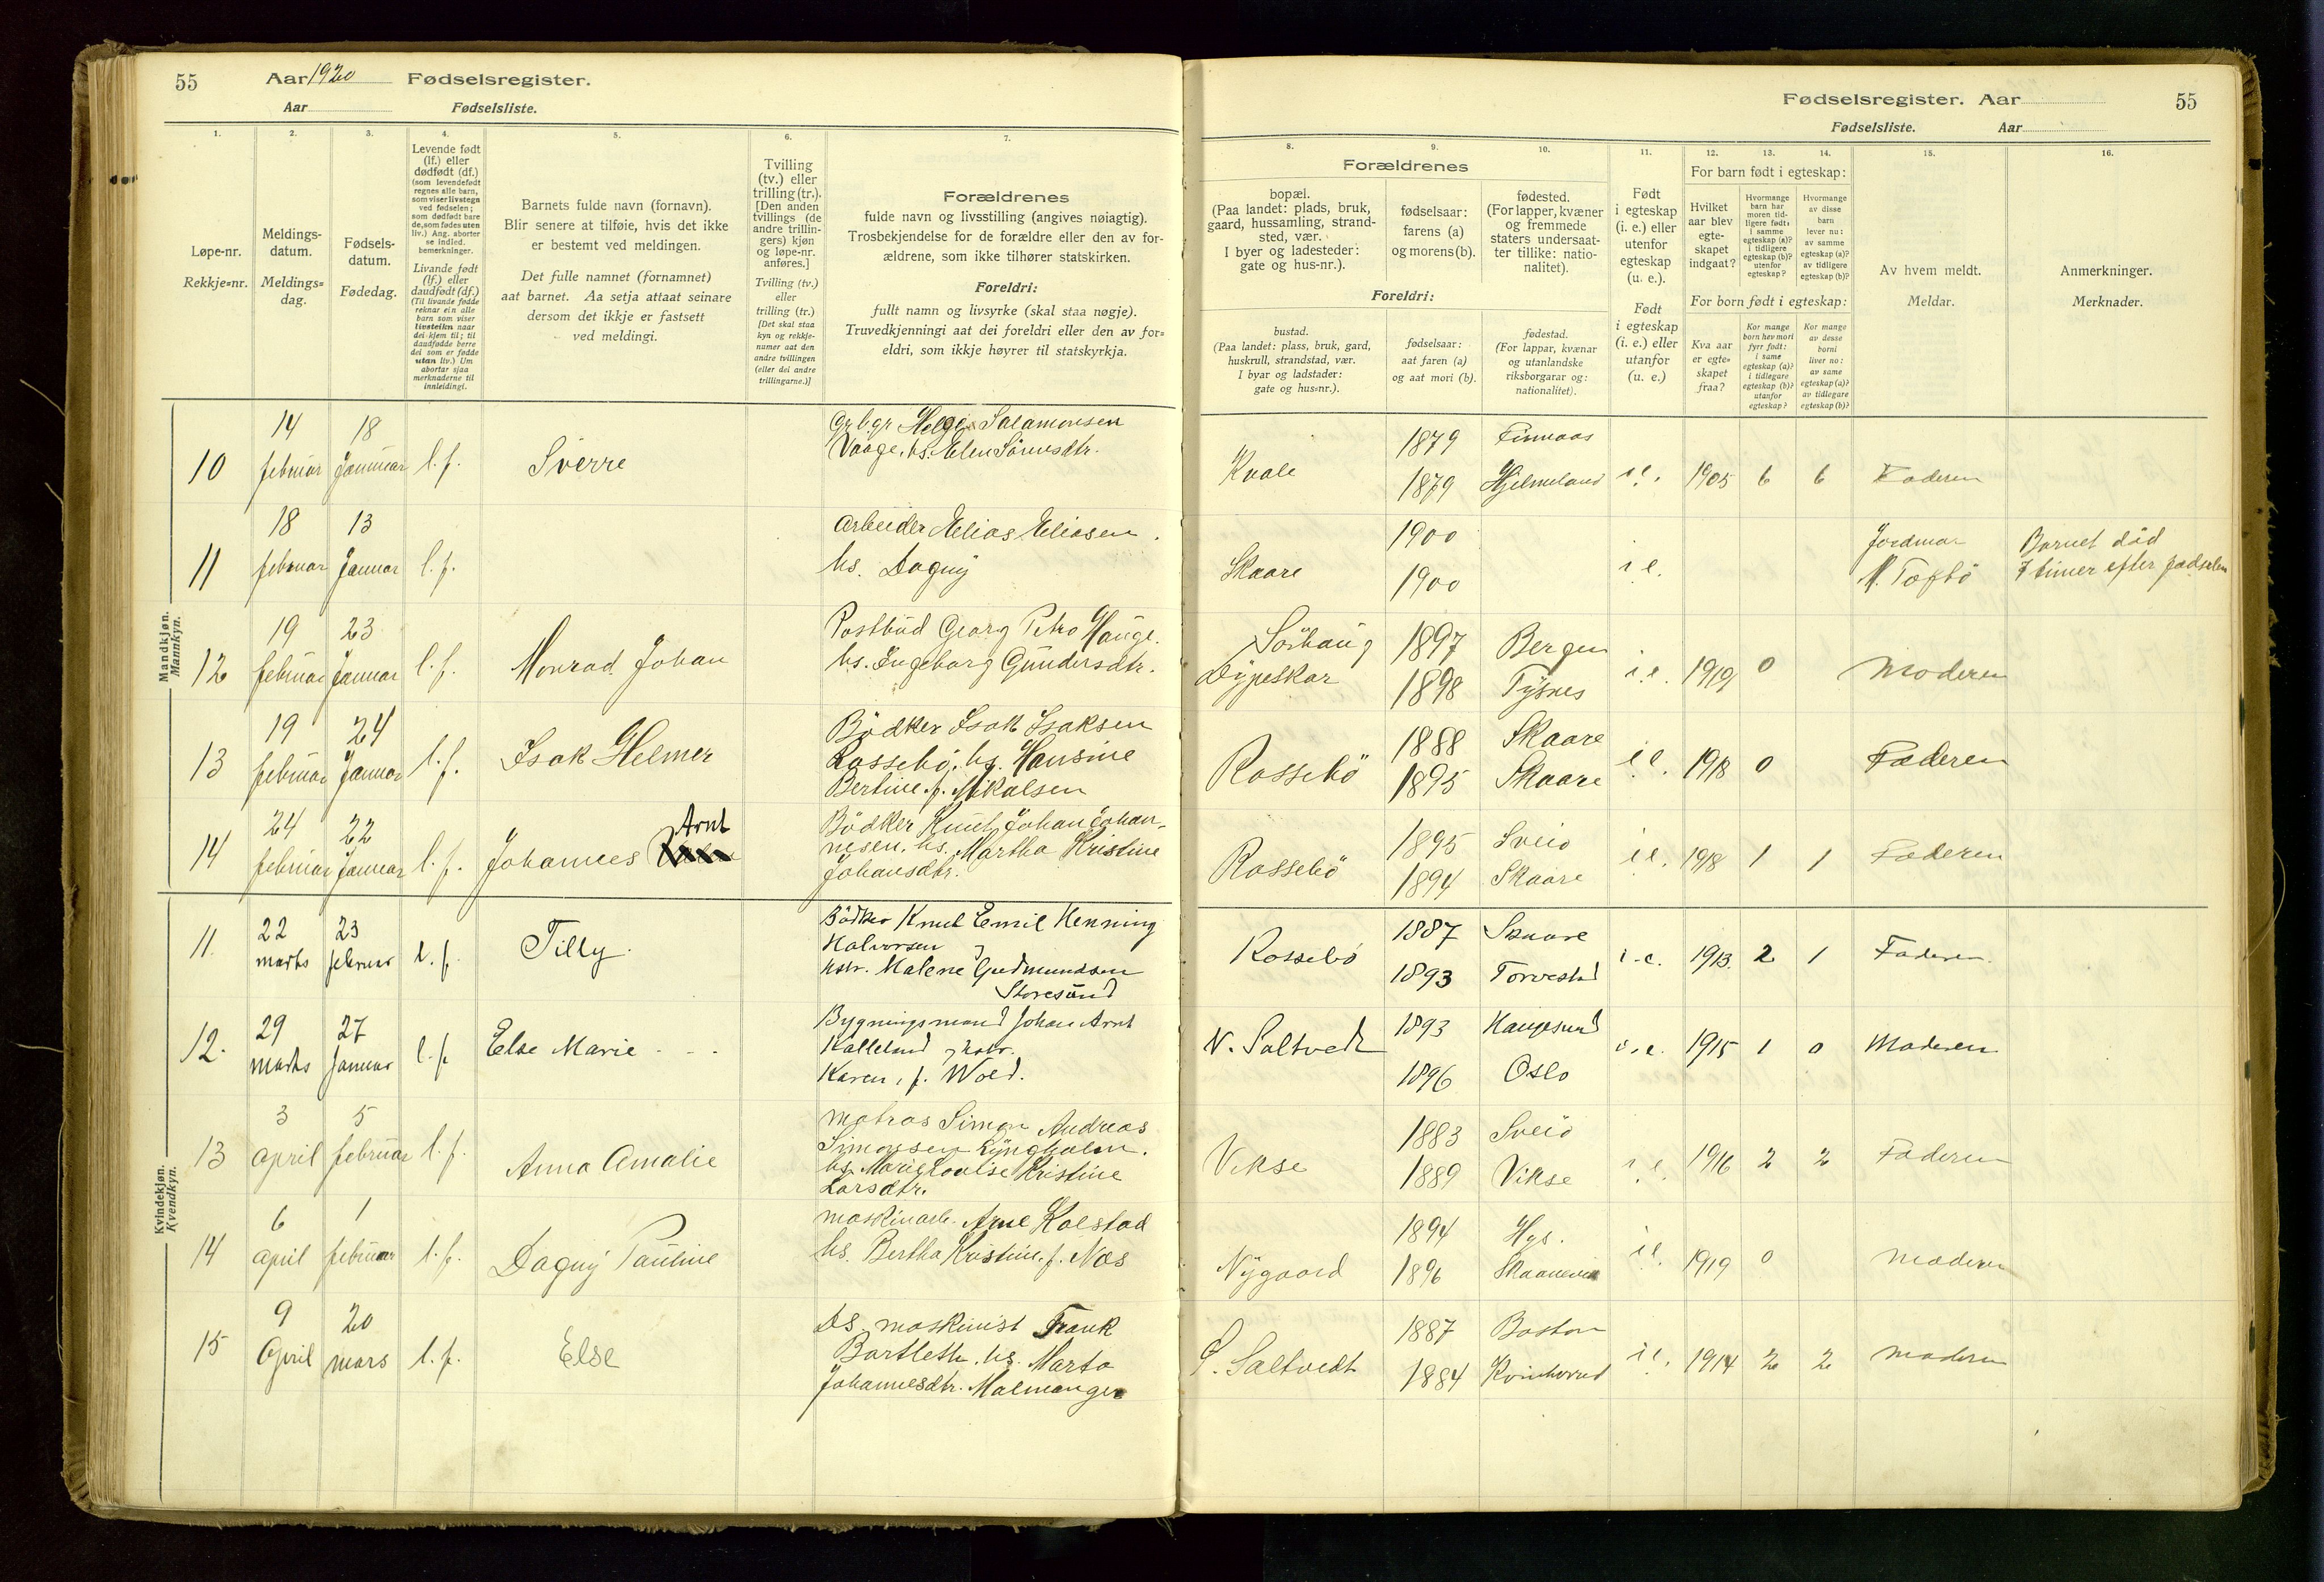 55 Aar 1920 Fødselsregister.
Aar Fødselsliste.
Fødselsregister. Aar 55
Fødselsliste. Aar
1. 2. 3. 4. 5. 6. 7. 8. 9. 10. 11. 12. 13. 14. 15. 16.
Løpe-nr.
Rekkje-nr.
Meldings-
datum.
Meldings-
dag.
Fødsels-
datum.
Fødedag.
Levende født
(lf.) eller
dødfødt (df.)
(som levendefødt
regnes alle barn,
som viser livstegn
ved fødselen;
som dødfødt bare
de, som fødes uten
liv.) Ang. aborter
se indled.
bemerkninger.
Livande født
(lf.) eller
daudfødt (df.)
(Til livande fødde
reknar ein alle
born som viser
livsteikn naar
dei kjem til; til
daudfødde berre
dei som er fødde
utan liv.) Um
abortar sjaa
merknaderne til
innleidingi.
Barnets fulde navn (fornavn).
Blir senere at tilføie, hvis det ikke
er bestemt ved meldingen.
Det fulle namnet (fornamnet)
aat barnet. Aa setja attaat seinare
dersom det ikkje er fastsett
ved meldingi.
Tvilling
(tv.) eller
trilling (tr.).
[Den anden
tvillings (de
andre trillin-
gers) kjøn
og løpe-nr.
anføres.]
Tvilling (tv.)
eller
trilling (tr.)
[Det skal staa
kyn og rekkje-
numer aat den
andre tvillingen
(eller dei andre
trillingarne.)]
Forældrenes
fulde navn og livsstilling (angives nøiagtig).
Trosbekjendelse for de forældre eller den av for-
ældrene, som ikke tilhører statskirken.
Foreldri:
fullt namn og livsyrke (skal staa nøgje).
Truvedkjenningi aat dei foreldri eller den av for-
eldri, som ikkje høyrer til statskyrkja.
Forældrenes
bopæl.
(Paa landet: plads, bruk,
gaard, hussamling, strand-
sted, vær.
I byer og ladesteder:
gate og hus-nr.).
fødselsaar:
farens (a)
og morens (b).
fødested.
(For lapper, kvæner
og fremmede
staters undersaat-
ter tillike: natio-
nalitet).
Foreldri:
bustad.
(Paa landet: plass, bruk, gard,
huskrull, strandstad, vær.
I byar og ladstader:
gate og hus-nr.).
fødselsaar:
aat faren (a)
og aat mori (b).
fødestad.
(For lappar, kvænar
og utanlandske
riksborgarar og:
nationalitet).
Født
i egteskap
(i. e.) eller
utenfor
egteskap
(u. e.).
Født
i egteskap
(i. e.) eller
utanfor
(u. e.)
For barn født i egteskap:
Hvilket
aar blev
egte-
skapet
indgaat?
Hvormange
barn har
moren tid-
ligere født:
i samme
egteskap (a)?
i tidligere
egteskap (b)?
utenfor
egteskap?
Hvormange
av disse
barn
lever nu:
av samme
egteskap (a)?
av tidligere
egteskap (b)?
For born født i egteskap:
Kva aar
er egte-
skapet
fraa?
Kor mange
born hev mori
fyrr født:
i same
egteskap (a)?
i tidlegare
egteskap (b)?
utanfor
egteskap?
Kor mange
av desse
borni
liver no:
av same
egteskap (a)?
av tidlegare
egteskap (b)?
Av hvem meldt.
Meldar.
Anmerkninger.
Merknader.
Mandkjøn.
Mannkyn.
10 14 februar 18 Januar l. f. Sverre
Grbgr Helge Salamonsen
Vaage, hs. Elen Sörensdtr.
Kvale 1879 Finnaas
1879 Hjelmeland i.e. 1905 6 6 Faderen
11 18 februar 13 Januar l. f.
Arbeider Elias Eliasen.
hs. Dagny
Skaare 1900
1900 i.e. Jordmor
Barnet död
7 timer efter fødselen
12 19 februar 23 Januar l. f. Monrad Johan
Postbud Georg Petro Hauge.
hs. Ingeborg Gundersdtr.
Sörhaug
Dypeskar 1897 Bergen
1898 Tysnes i.e. 1919 0 Moderen
13 19 februar 24 Januar l. f. Isak Helmer
Bödker Isak Isaksen
Rossebö, hs. Hansine
Bertine f. Mikalsen
Rossebö 1888 Skaare
1895 Skaare i.e. 1918 0 Faderen
14 24 februar 22 Januar l. f. Johannes Arnt
Bödker Knut Johan Johan-
nesen, hs. Martha Kristine
Johansdtr.
Rossebö 1895 Sveio
1894 Skaare i.e. 1918 1 1 Faderen
Kvindekjøn.
Kvendkyn.
11. 22 marts 23 februar l. f. Tilly.
Bödker Knut Emil Henning
Halvorsen
hstr. Malene Gudmundsen
Storesund
Rossebö 1887 Skaare
1893 Torvestad i.e. 1913. 2 1 Faderen.
12. 29 marts 27 Januar l. f. Else Marie
Bygningsmand Johan Arnt
Kalleland hstr.
Karen, f. Wold.
N. Saltvedt 1893 Haugesund
1896 Oslo i.e. 1915 1 0 Moderen
13 3 april 5 februar l. f. Anna Amalie
matros Simon Andreas
Simonsen Lyngholm.
hs. Marie Lovise Kristine
Larsdtr.
Vikse 1883 Sveio
1889 Vikse i.e. 1916 2 2 Faderen
14 6 april 1 februar l. f. Dagny Pauline
maskinarb. Arne Kolstad
hs. Bertha Kristine, f. Næs
Nygaard 1894 Hys.
1896 Skaanevik i.e. 1919 0 Moderen
15 9 April 20 mars l. f. Else
Ds. maskinist Frank
Bartleth, hs. Marta
Johannesdtr. Malmanger
S. Saltvedt 1887 Boston
1884 Kvinherred i.e. 1914 2 2 Moderen